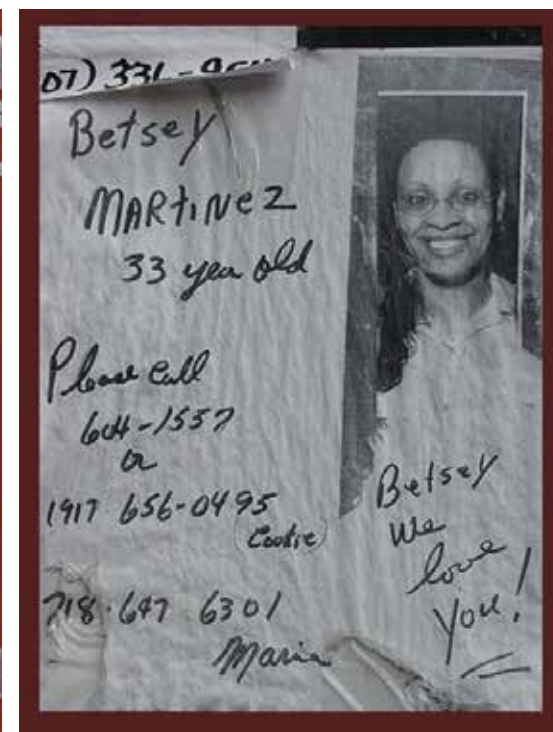 07) 331-
Betsey
MARtiNez
33 year old
Please call
604-1557
or
1917 656-0495
(Cookie)
718-647 6301
Maria
Betsey
We
love
you!